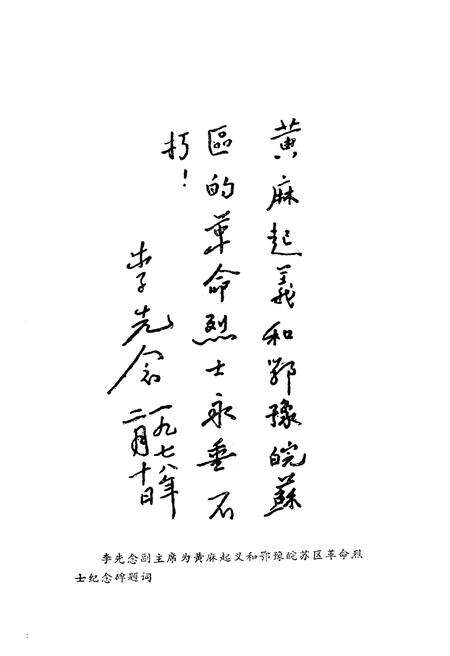 黄麻起義和鄂豫皖蘇
區的革命烈士永垂不
朽！
李先念
一九七八年
二月十日
李先念副主席为黄麻起义和鄂豫皖苏区革命烈
士纪念碑题词